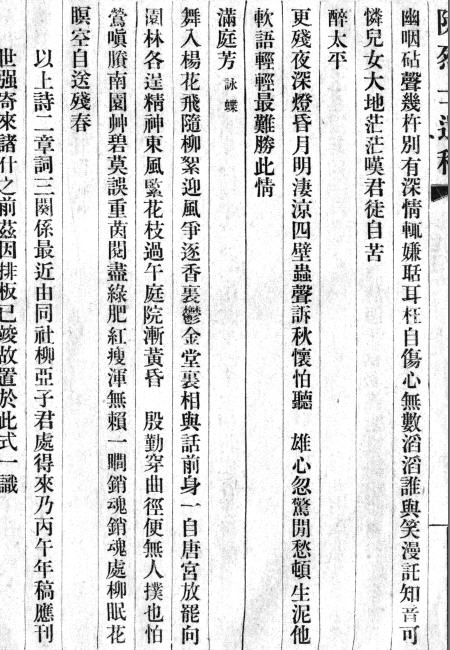 幽咽砧聲幾杵別有深情輒嫌聒耳枉自傷心無數滔滔誰與笑漫託知音可
憐兒女大地茫茫嘆君徒自苦
醉太平
更殘夜深燈昏月明淒涼四壁蟲聲訴秋懷怕聽　雄心忽驚閒愁頓生泥他
軟語輕輕最難勝此情
滿庭芳 詠蝶
舞入楊花飛隨柳絮迎風爭逐香裏鬱金堂裏相與話前身一自唐宮放罷向
園林各逞精神東風緊花枝過午庭院漸黃昏　殷勤穿曲徑便無人撲也怕
鶯嗔賸南園艸碧莫誤重茵閱盡綠肥紅瘦渾無賴一瞯銷魂銷魂處柳眠花
瞑空自送殘春
以上詩二章詞三闋係最近由同社柳亞子君處得來乃丙午年稿應刊
世强寄來諸什之前茲因排板已竣故置於此式一識